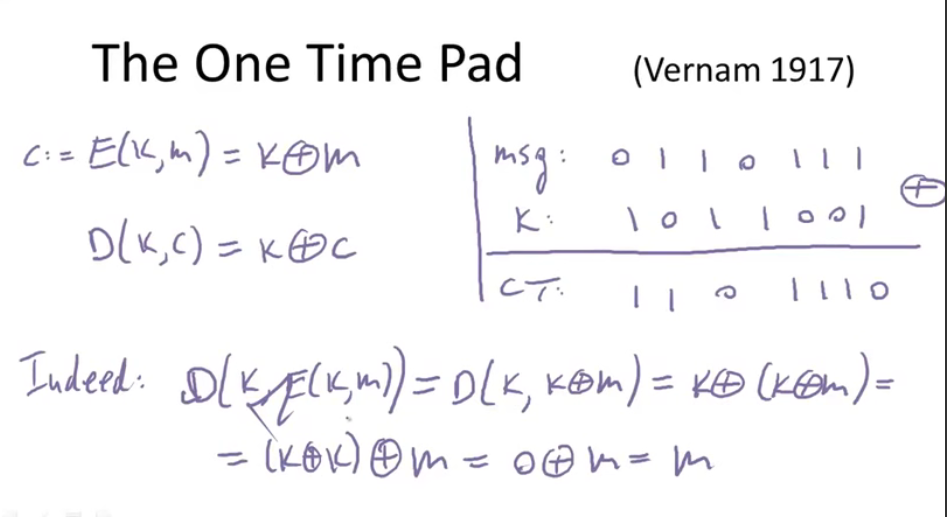 The One Time Pad (Vernam 1917)
C := E(K,m) = K⊕m
D(K,C) = K⊕C
msg: 0 1 1 0 1 1 1
K: 1 0 1 1 0 0 1
⊕
CT: 1 1 0 1 1 1 0
Indeed: D(K, E(K,m)) = D(K, K⊕m) = K⊕(K⊕m) =
= (K⊕K)⊕m = 0⊕m = m